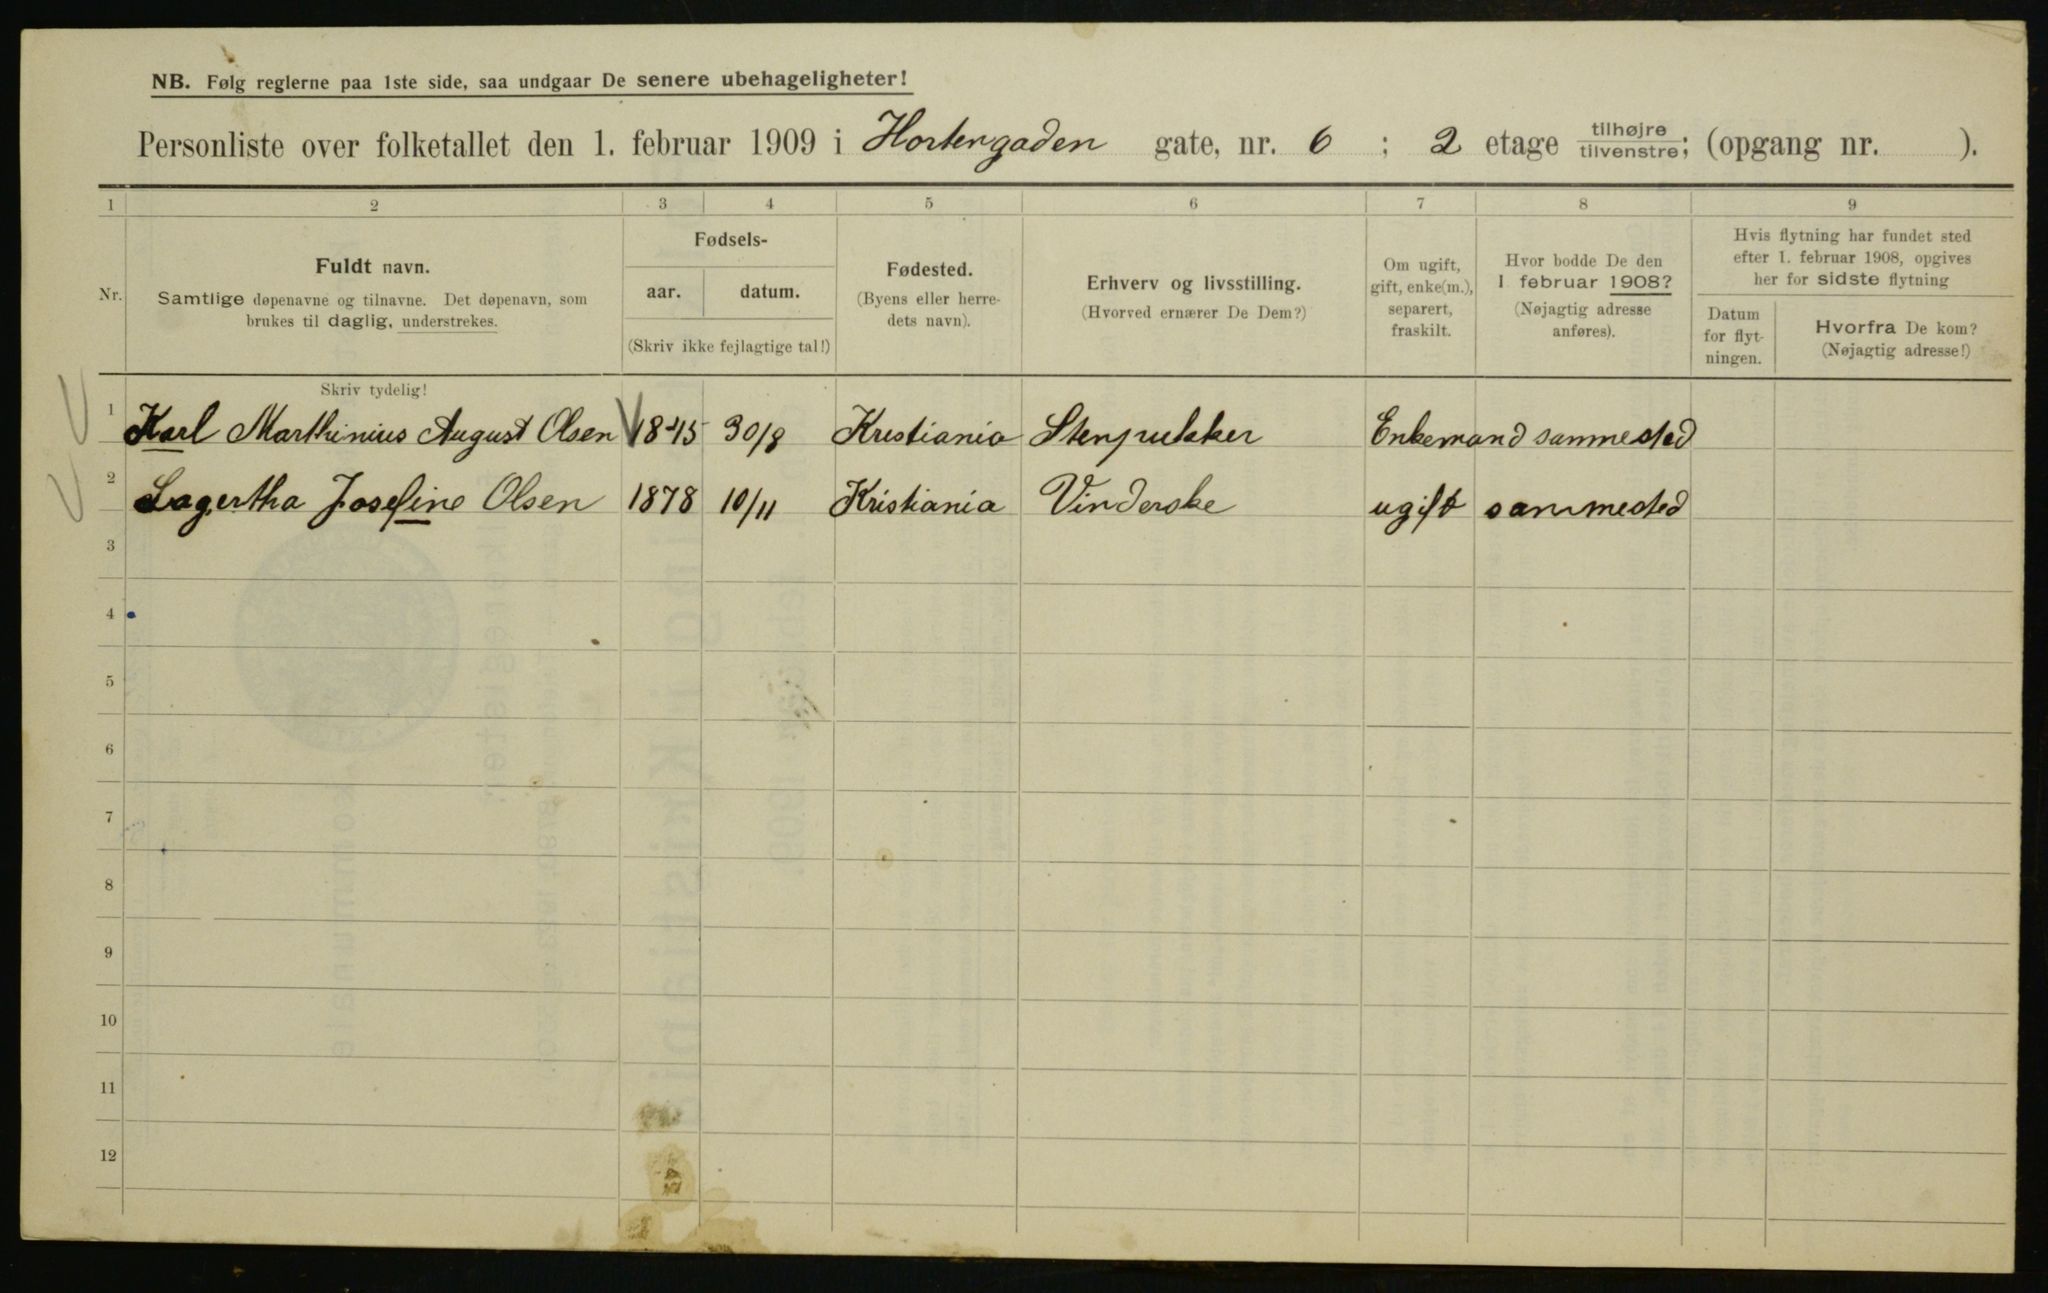 NB. Følg reglerne paa 1ste side, saa undgaar De senere ubehageligheter!
Personliste over folketallet den 1. februar 1909 i Hortengaden gate, nr. 6 ; 2 etage tilhøjre tilvenstre; (opgang nr. ).
1 2 3 4 5 6 7 8 9
Nr.
Fuldt navn.
Samtlige døpenavne og tilnavne. Det døpenavn, som
brukes til daglig, understrekes.
Fødsels-
aar. datum.
(Skriv ikke fejlagtige tal!)
Fødested.
(Byens eller herre-
dets navn).
Erhverv og livsstilling.
(Hvorved ernærer De Dem?)
Om ugift,
gift, enke(m.),
separert,
fraskilt.
Hvor bodde De den
1 februar 1908?
(Nøjagtig adresse
anføres).
Hvis flytning har fundet sted
efter 1. februar 1908, opgives
her for sidste flytning
Datum
for flyt-
ningen.
Hvorfra De kom?
(Nøjagtig adresse!)
Skriv tydelig!
1 Karl Marthinius August Olsen 1845 30/8 Kristiania Stenpukker Enkemand sammested
2 Lagertha Josefine Olsen 1878 10/11 Kristiania Vinderske ugift sammested
3
4
5
6
7
8
9
10
11
12